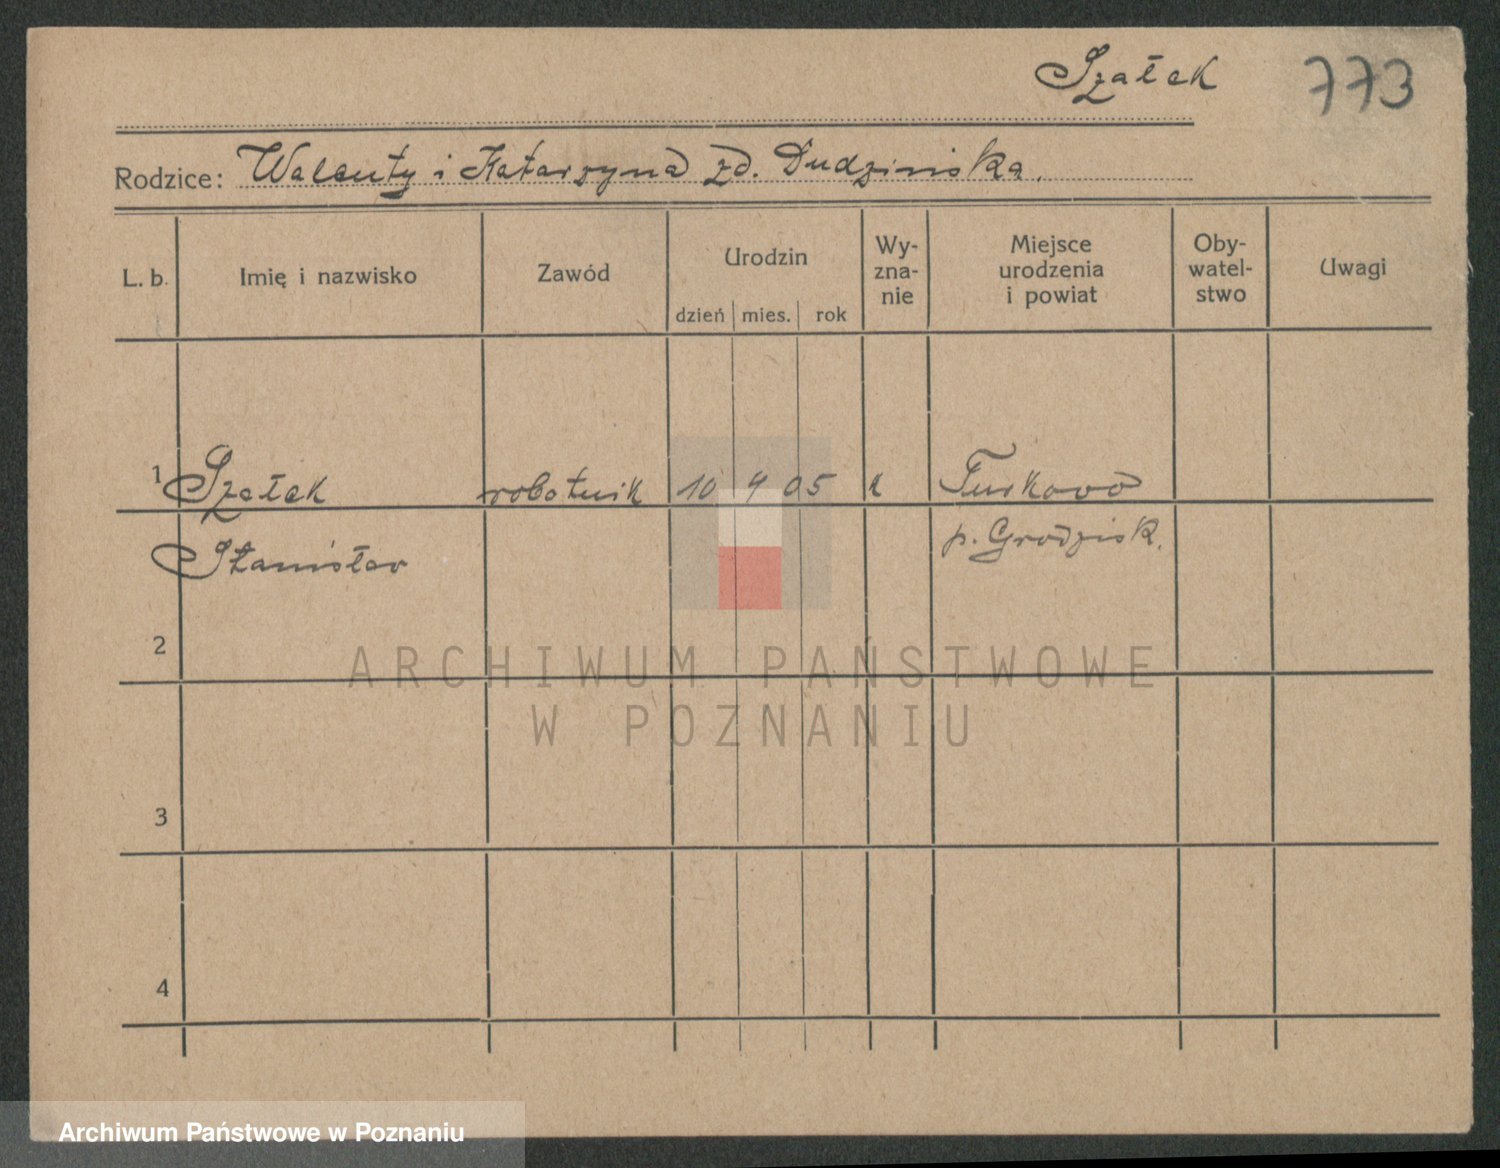 Szałek
773
Rodzice: Walenty i Katarzyna zd. Dudzińska.
L. b. Imię i nazwisko Zawód Urodzin dzień mies. rok Wy-zna-nie Miejsce urodzenia i powiat Oby-watel-stwo Uwagi
1 Szałek robotnik 10 4 05 k Turkowo
Stanisław p. Grodzisk.
2
3
4
ARCHIWUM PAŃSTWOWE
W POZNANIU
Archiwum Państwowe w Poznaniu